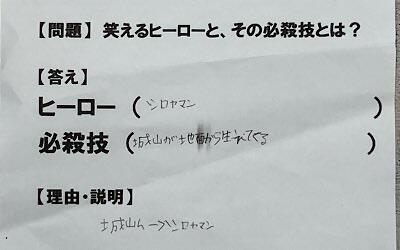 【問題】笑えるヒーローと、その必殺技とは？
【答え】
ヒーロー（シロヤマン）
必殺技（城山が地面から生えてくる）
【理由・説明】
城山ん→シロヤマン